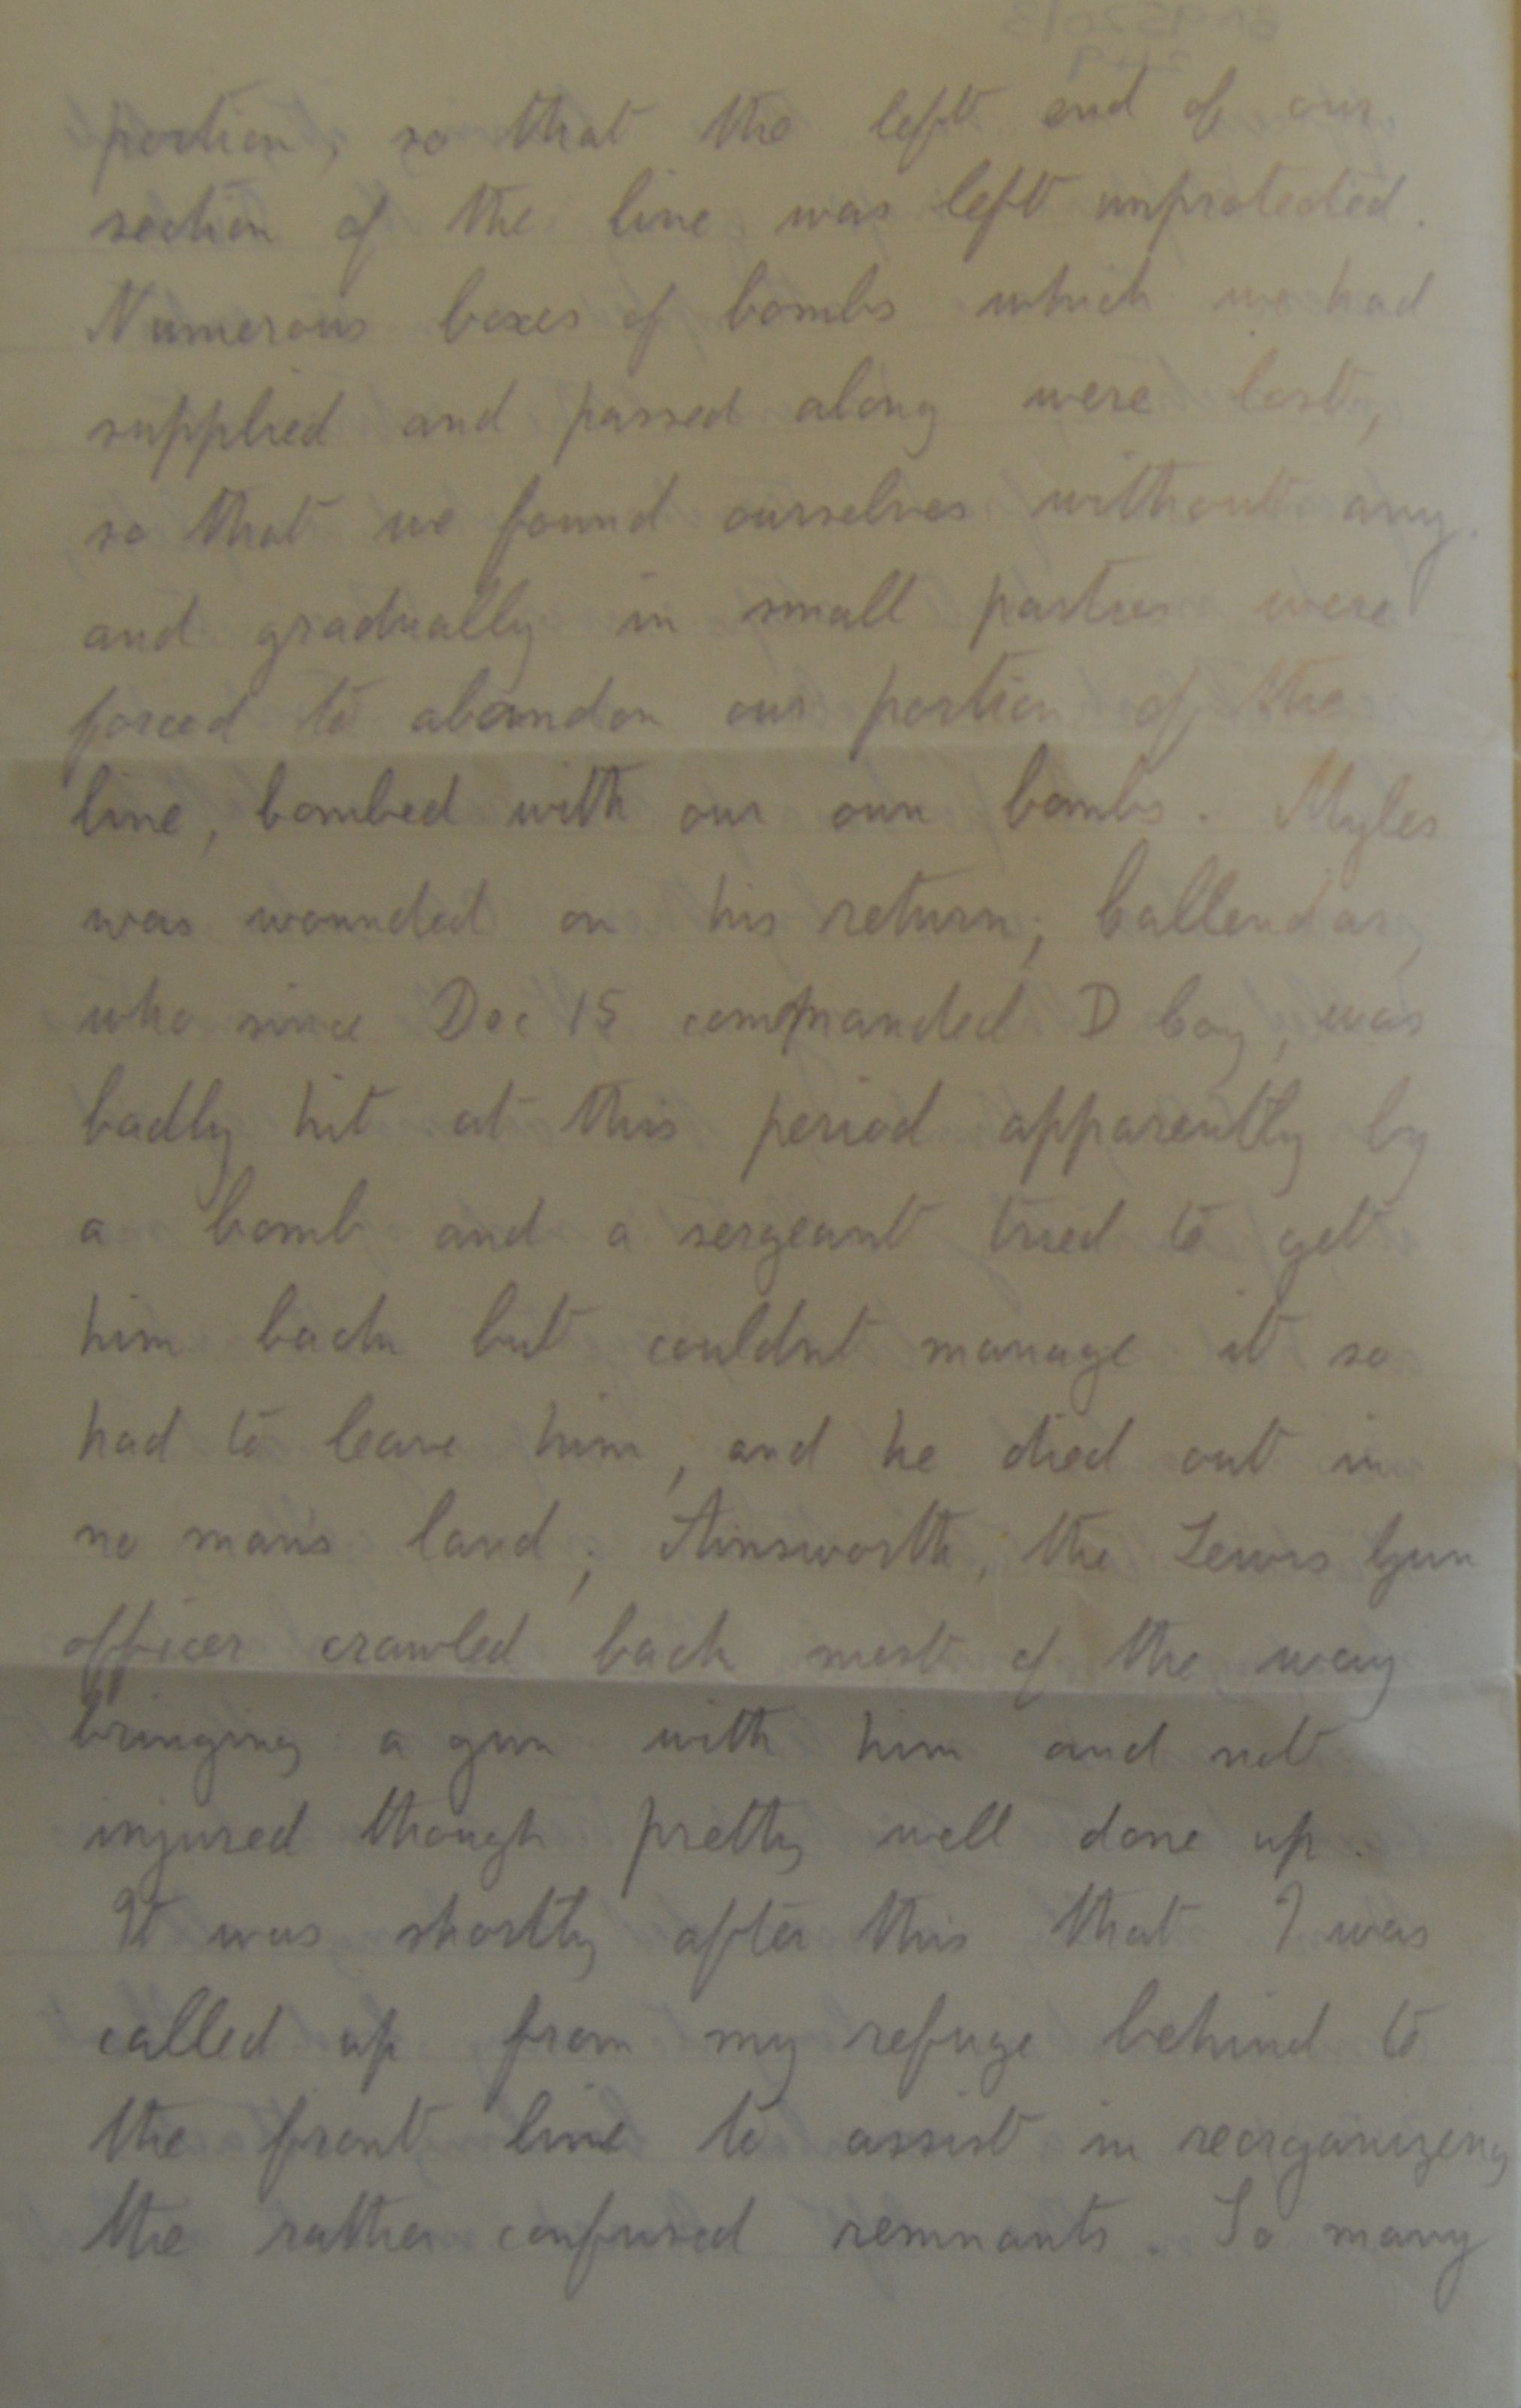 portion, so that the left end of our
section of the line was left unprotected.
Numerous boxes of bombs which we had
supplied and passed along were lost,
so that we found ourselves without any.
and gradually in small parties were
forced to abandon our portion of the
line, bombed with our own bombs. Myles
was wounded on his return; Callendar,
who since Dec 15 commanded D Coy, was
badly hit at this period apparently by
a bomb and a sergeant tried to get
him back but couldnt manage it so
had to leave him, and he died out in
no man's land; Ainsworth, the Lewis Gun
officer crawled back most of the way
bringing a gun with him and not
injured though pretty well done up.
It was shortly after this that I was
called up from my refuge behind to
the front line to assist in reorganizing
the rather confused remnants. So many